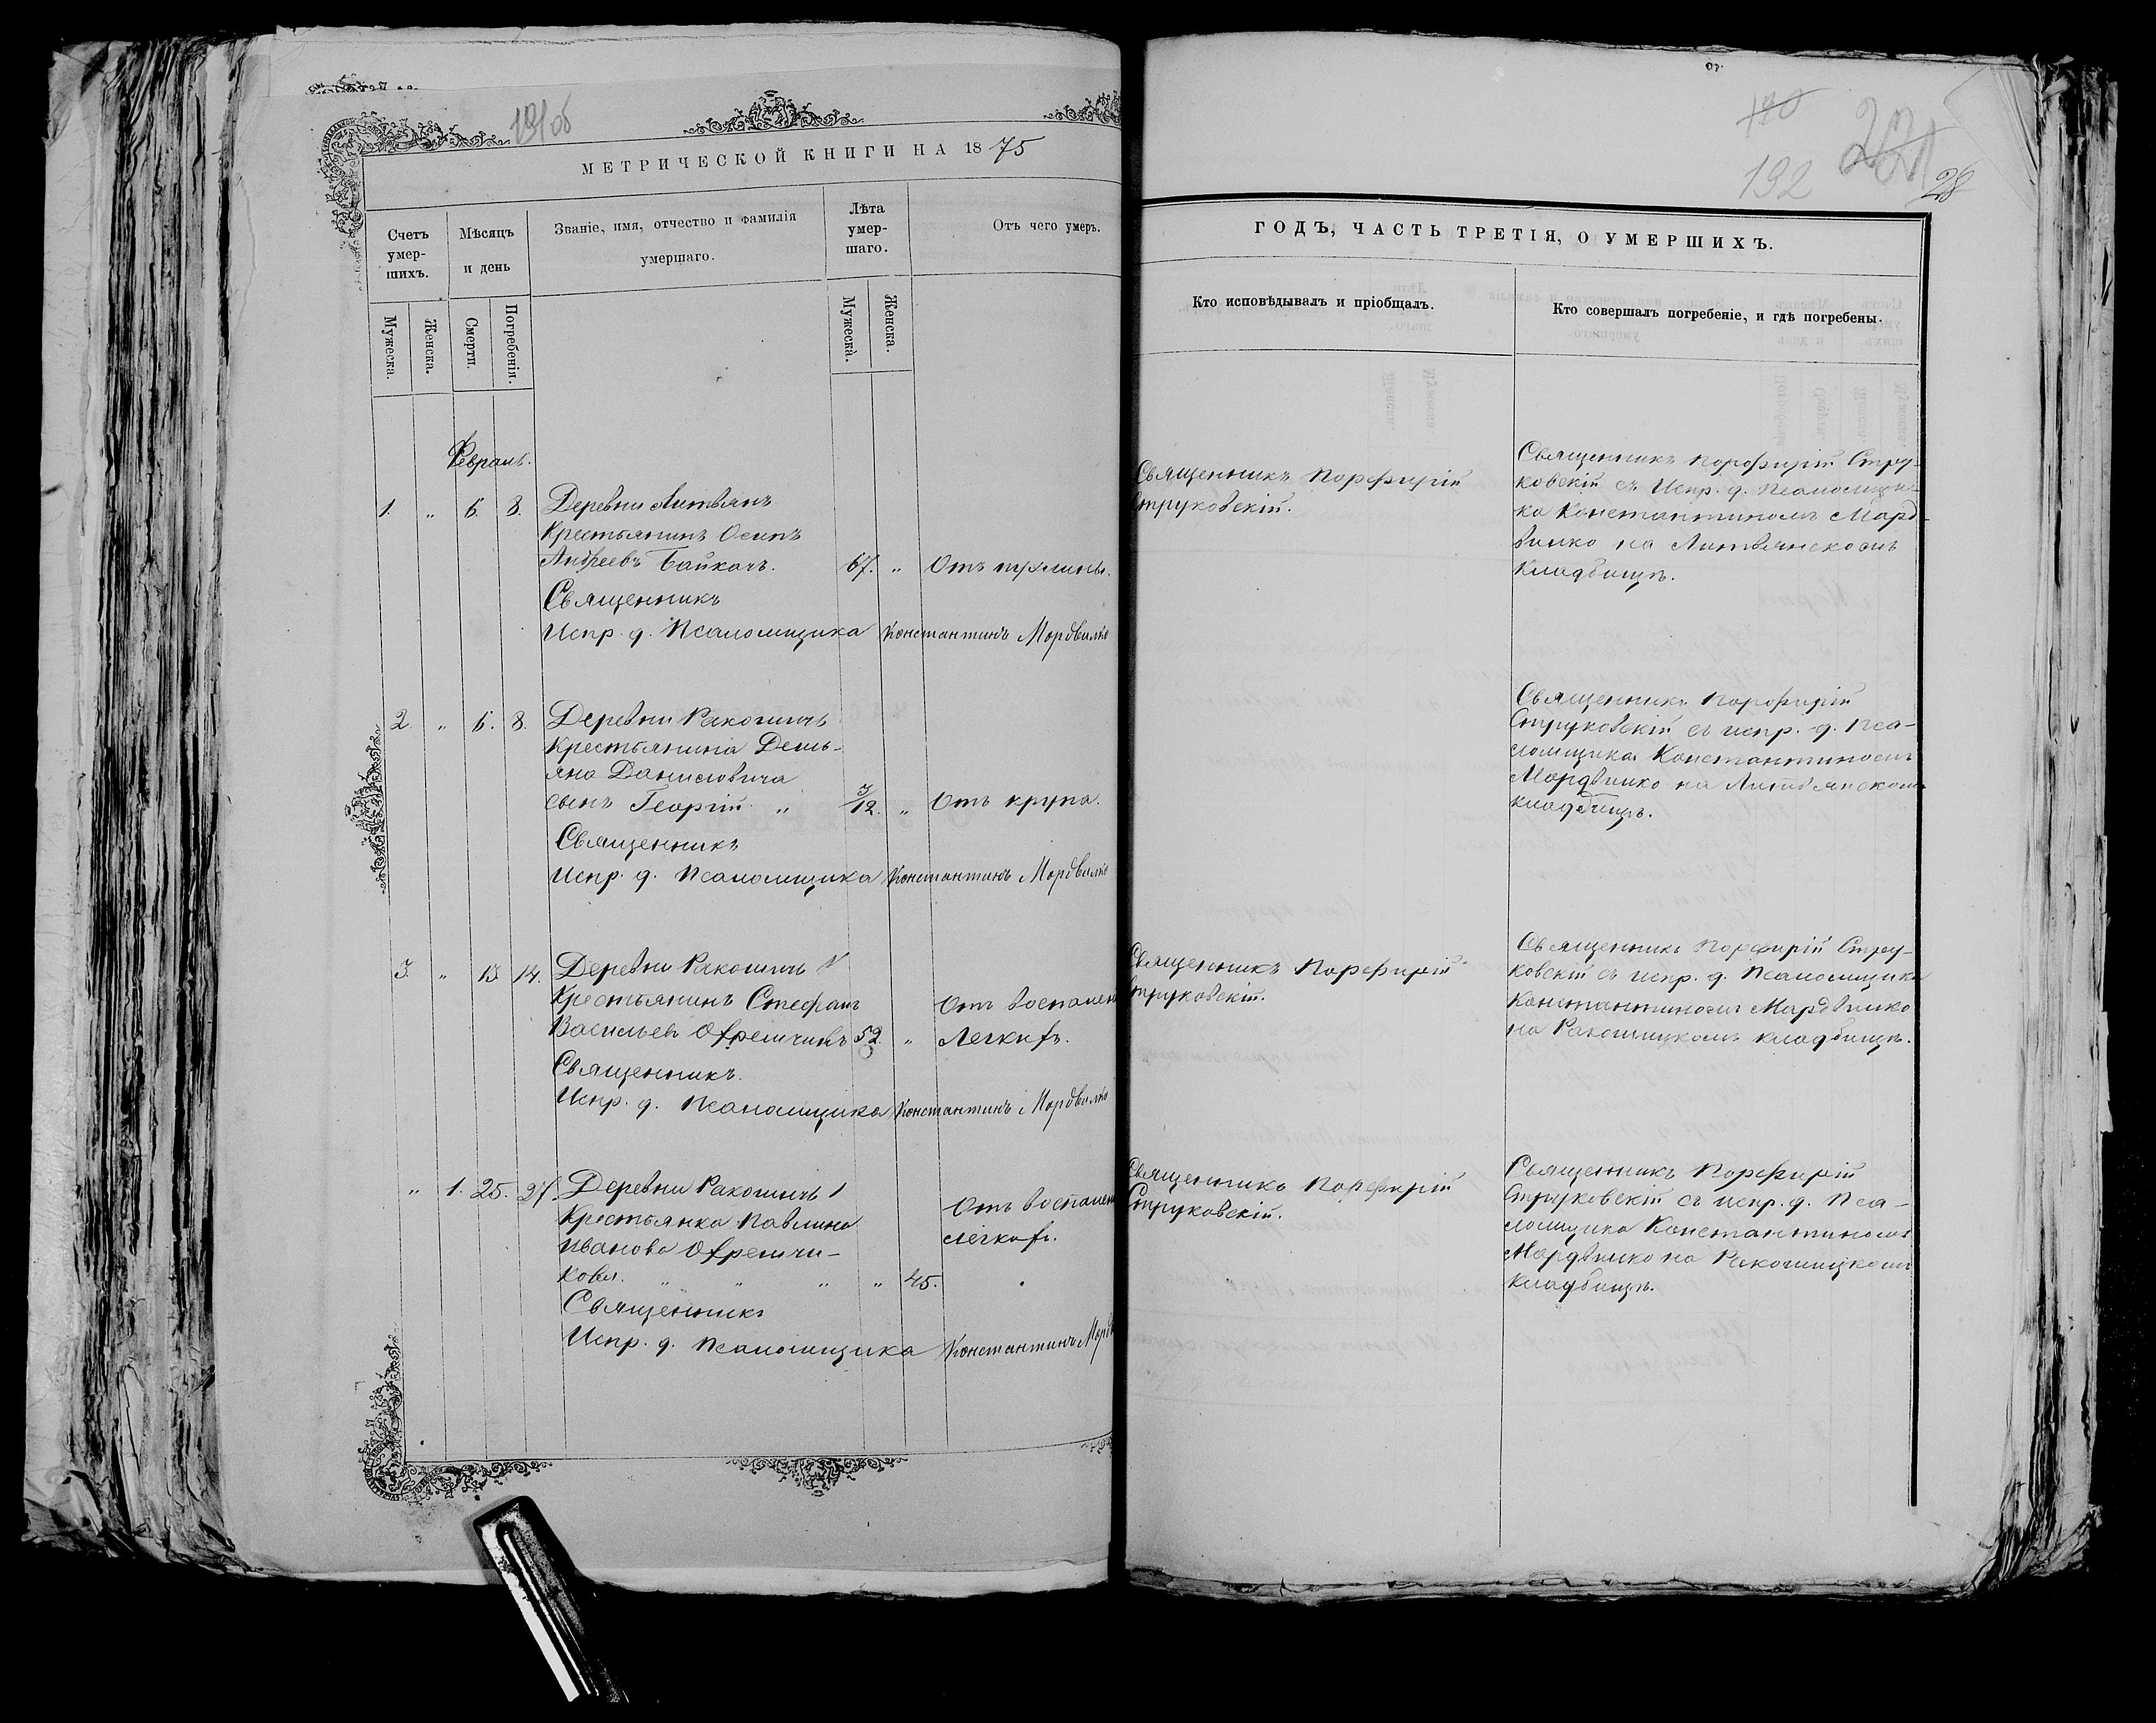 МЕТРИЧЕСКОЙ КНИГИ НА 1875
Счетъ умер-шихъ.
Мѣсяцъ и день
Званіе, имя, отчество и фамилія умершаго.
Лѣта умер-шаго.
Отъ чего умеръ.
Мужеска.
Женска.
Смерти.
Погребенія.
Мужеска.
Женска.
Февраль.
1. „ 6. 8. Деревни Литвянъ
Крестьянинъ Осипъ
Андреевъ Байкачъ. 67. „ Отъ
Священникъ
Испр. д. Псаломщика Константинъ Мордвилко
2. „ 6. 8. Деревни Ракошичъ
Крестьянина Демь-
яна Данисовича
сынъ Георгій „ /12. „ Отъ крупа.
Священникъ
Испр. д. Псаломщика Константинъ Мордвилко
3. „ 13 14. Деревни Ракошичъ
Крестьянинъ Стефанъ Отъ воспален
Васильевъ 52. „ Легкихъ.
Священникъ.
Испр. д. Псаломщика Константинъ Мордвилко
„ 1. 25. 27. Деревни Ракошичъ
Крестьянка Павлина Отъ воспален
Иванова легкихъ.
кова. „ „ „ „ 45.
Священникъ
Испр. д. Псаломщика Константинъ Мордв
170
192
221
28
ГОДЪ, ЧАСТЬ ТРЕТІЯ, О УМЕРШИХЪ.
Кто исповѣдывалъ и пріобщалъ.
Кто совершалъ погребеніе, и гдѣ погребены.
Священникъ Порфирій
Струковскій.
Священникъ Порфирій Стру-
ковскій съ Испр. д. Псаломщи-
ка Константиномъ Морд-
вилко на Литвянскомъ
кладбищѣ.
Священникъ Порфирій
Струковскій съ испр. д. Пса-
ломщика Константиномъ
Мордвилко на Литвянскомъ
кладбищѣ.
Священникъ Порфирій
Струковскій.
Священникъ Порфирій Стру-
ковскій съ испр. д. Псаломщика
Константиномъ Мордвилко
на Ракошицкомъ кладбищѣ.
Священникъ Порфирій
Струковскій.
Священникъ Порфирій
Струковскій съ испр. д. Пса-
ломщика Константиномъ
Мордвилко на Ракошицкомъ
кладбищѣ.